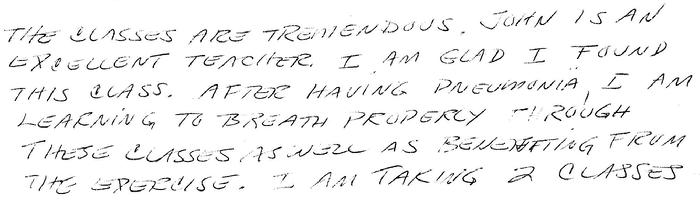 THE CLASSES ARE TREMENDOUS. JOHN IS AN
EXCELLENT TEACHER. I AM GLAD I FOUND
THIS CLASS. AFTER HAVING PNEUMONIA, I AM
LEARNING TO BREATH PROPERLY THROUGH
THESE CLASSES AS WELL AS BENEFITING FROM
THE EXERCISE. I AM TAKING 2 CLASSES